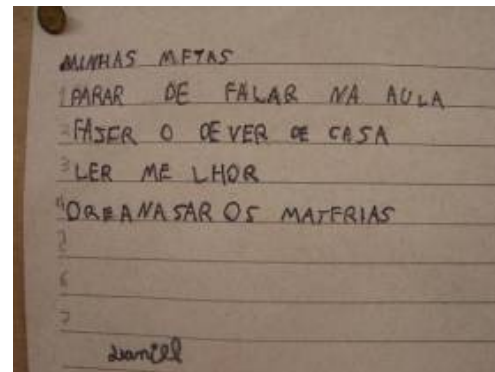 MINHAS METAS
1 PARAR DE FALAR NA AULA
2 FAJER O DEVER DE CASA
3 LER ME LHOR
4 OREANASAR OS MATERIAS
5
6
7
Daniel